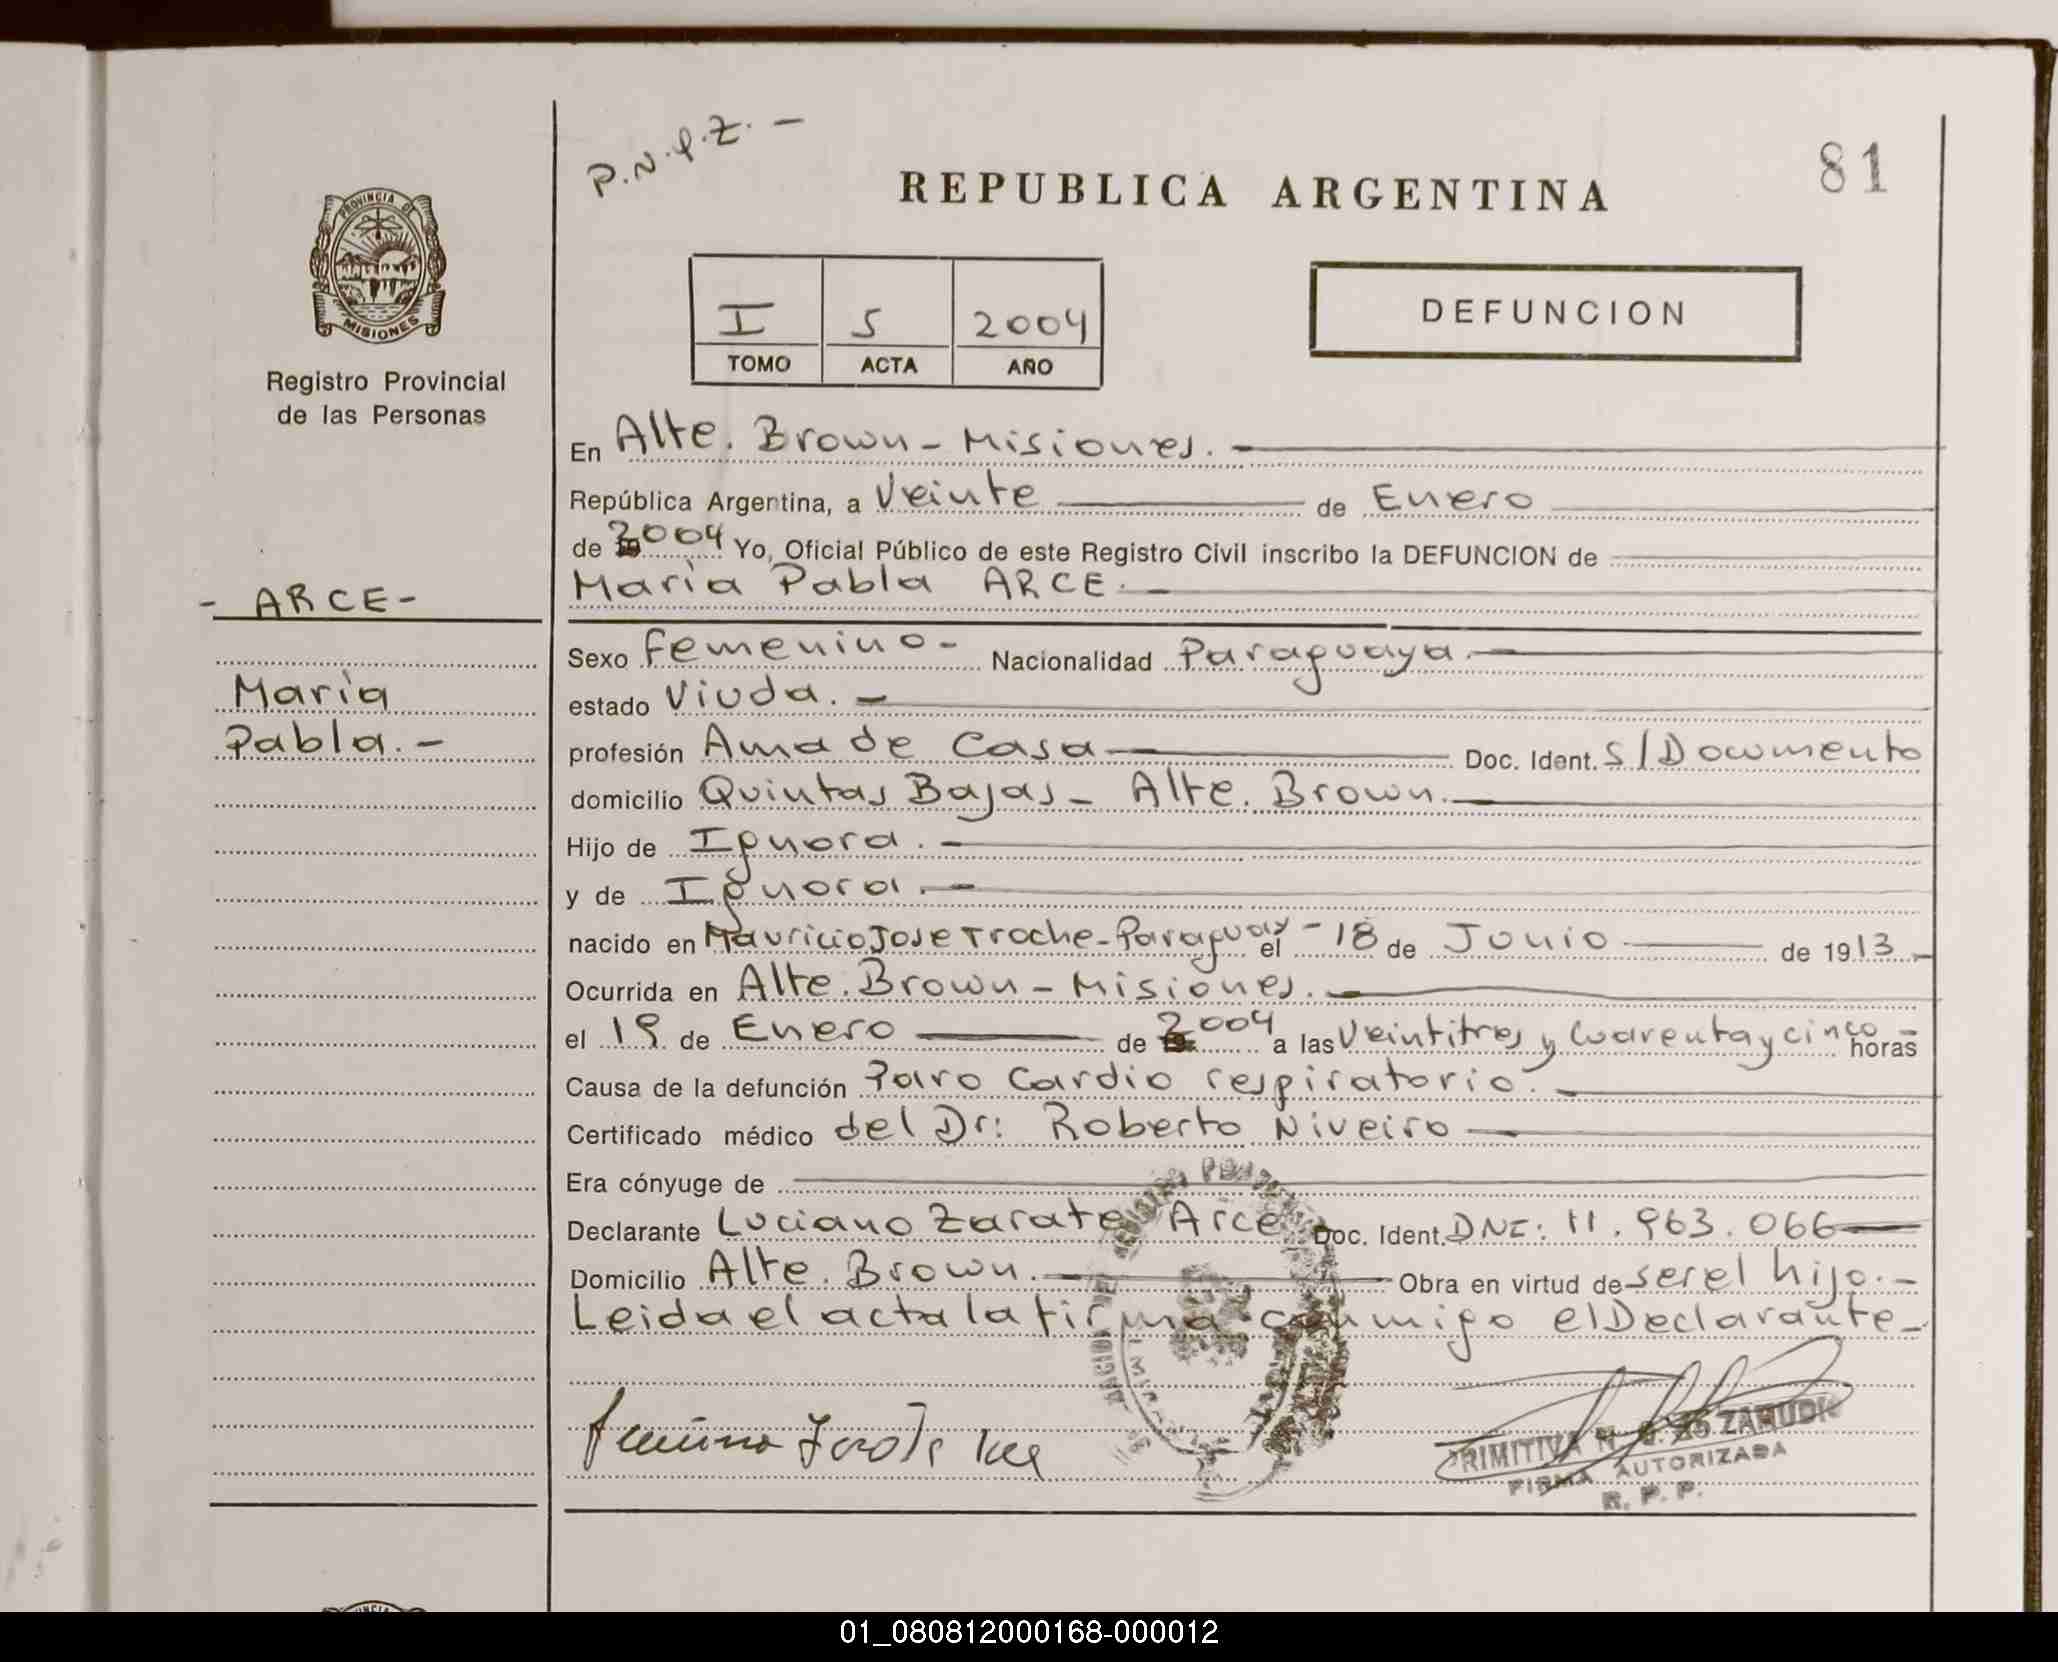 P.N.Q.Z. -
REPUBLICA ARGENTINA
81
PROVINCIA DE
MISIONES
Registro Provincial
de las Personas
I 5 2004
TOMO ACTA AÑO
DEFUNCION
En Alte. Brown - Misiones. -
República Argentina, a Veinte de Enero
de 2004 Yo, Oficial Público de este Registro Civil inscribo la DEFUNCION de
María Pabla ARCE. -
- ARCE -
María
Pabla. -
Sexo Femenino - Nacionalidad Paraguaya. -
estado Viuda. -
profesión Ama de Casa Doc. Ident. S/Documento
domicilio Quintas Bajas - Alte. Brown. -
Hijo de Ignora. -
y de Ignora. -
nacido en Mauricio Jose Troche - Paraguay el - 18 de Junio de 1913. -
Ocurrida en Alte. Brown - Misiones. -
el 19 de Enero de 2004 a las Veintitres y Cuarenta y cinco - horas
Causa de la defunción Paro Cardio respiratorio. -
Certificado médico del Dr: Roberto Niveiro
Era cónyuge de
Declarante Luciano Zarate Arce Doc. Ident. DNE: 11.963.066
Domicilio Alte. Brown. - Obra en virtud de ser el hijo. -
Leida el acta la firma conmigo el Declarante -
PRIMITIVA N
FIRMA AUTORIZADA
R. P. P.
01_080812000168-000012